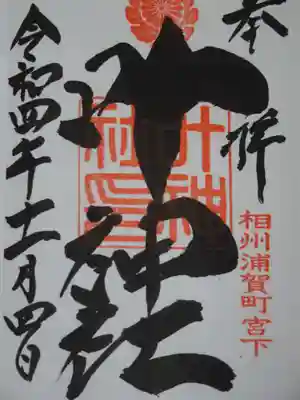 奉拝
相州浦賀町宮下
叶神社
叶神社印
令和四年十一月四日